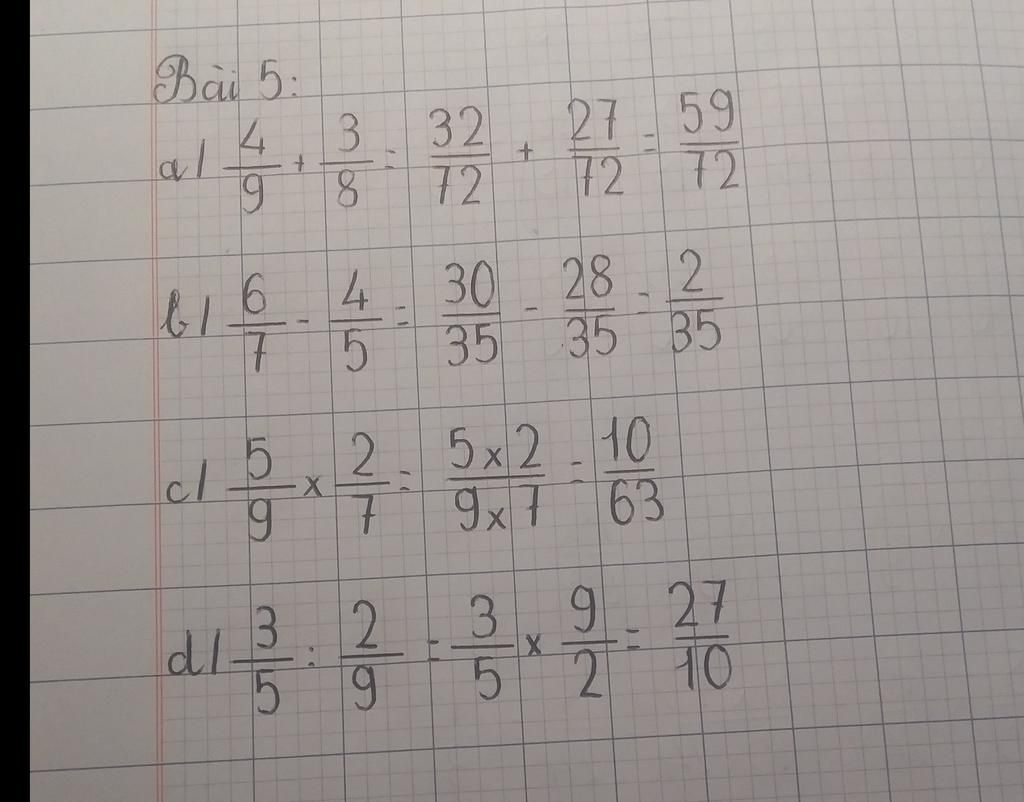 Bài 5:
a/ 4/9 + 3/8 = 32/72 + 27/72 = 59/72
b/ 6/7 - 4/5 = 30/35 - 28/35 = 2/35
c/ 5/9 x 2/7 = 5x2/9x7 = 10/63
d/ 3/5 : 2/9 = 3/5 x 9/2 = 27/10